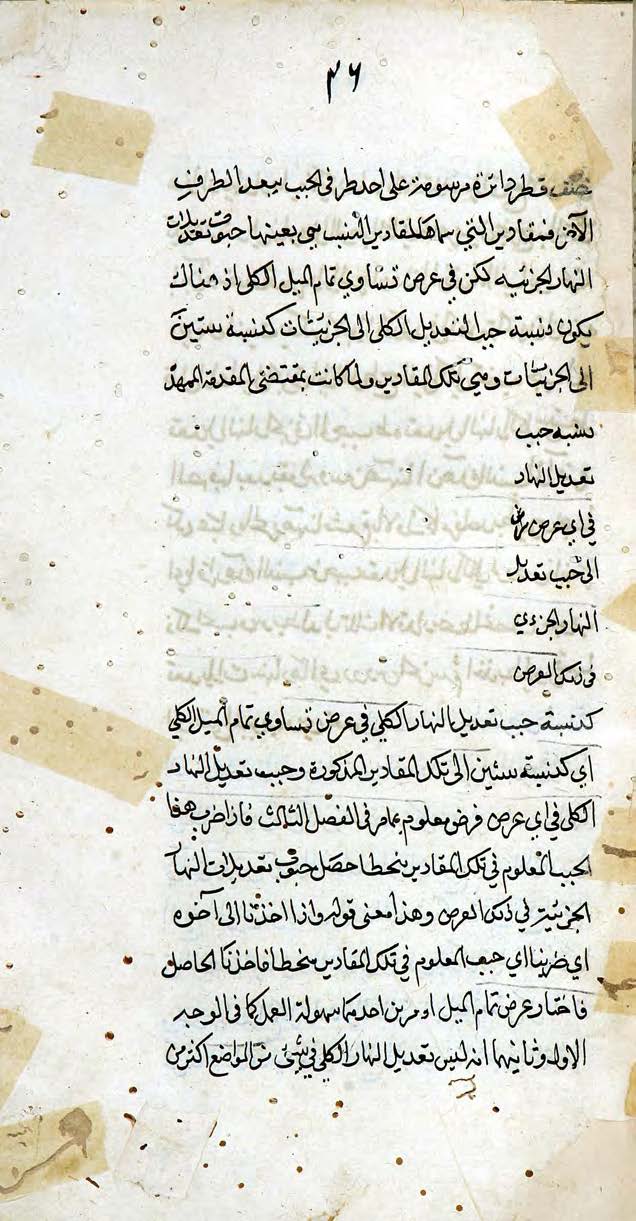 ٣٦
نصف قطر دائرة مرسومة على احد طرفي الجيب ببعد الطرف
الآخر فمقادير التي سماها المقادير النسب هي بعينها جيوب تعديلات
النهار الجزئيه لكن في عرض تساوي تمام الميل الكلي اذ هناك
يكون نسبة جيب التعديل الكلي الى الجزئيات كنسبة ستين
الى الجزئيات وهي تلك المقادير ولما كانت بمقتضى المقدمة الممهدة
نسبه جيب
تعديل النهار
في اي عرض
الى جيب تعديل
النهار الجزءي
في ذلك العرض
كنسبة جيب تعديل النهار الكلي في عرض تساوي تمام الميل الكلي
اي كنسبة ستين الى تلك المقادير المذكورة وجيب تعديل النهار
الكلي في اي عرض فرض معلوم بمامر في الفصل الثالث فاذا ضرب هذا
الجيب المعلوم في تلك المقادير منحطا حصل جيوب تعديلات النهار
الجزئية في ذلك العرض وهذا معنى قوله واذا اخذنا الى آخره
اي ضربنا اي جيب المعلوم في تلك المقادير منحطا فاخذنا الحاصل
فاختار عرض تمام الميل او مرين احدهما سهولة العمل كما في الوجه
الاول وثانيهما انه ليس تعديل النهار الكلي في شئ من المواضع اكثر من